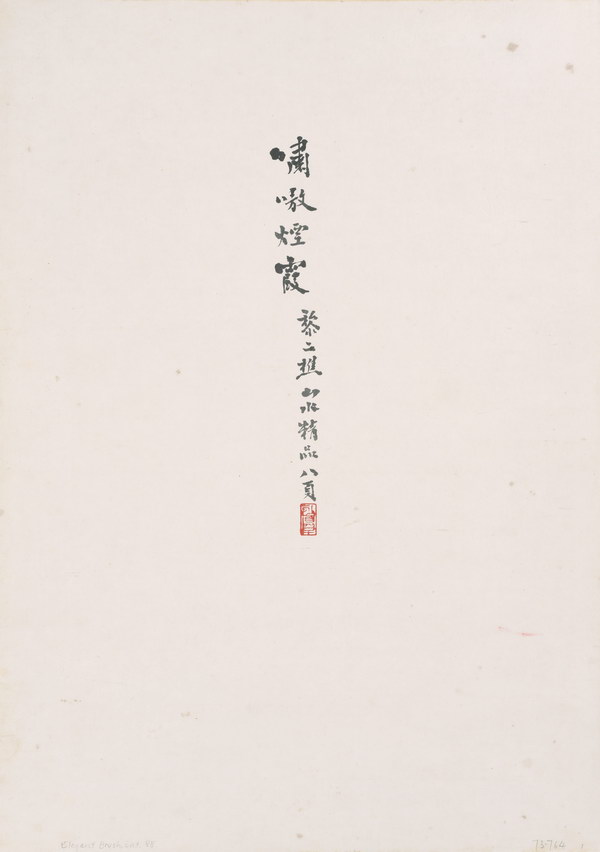 嘯嗷煙霞
黎二樵山水精品八頁
Elegant Brush, cat. 48
73.764